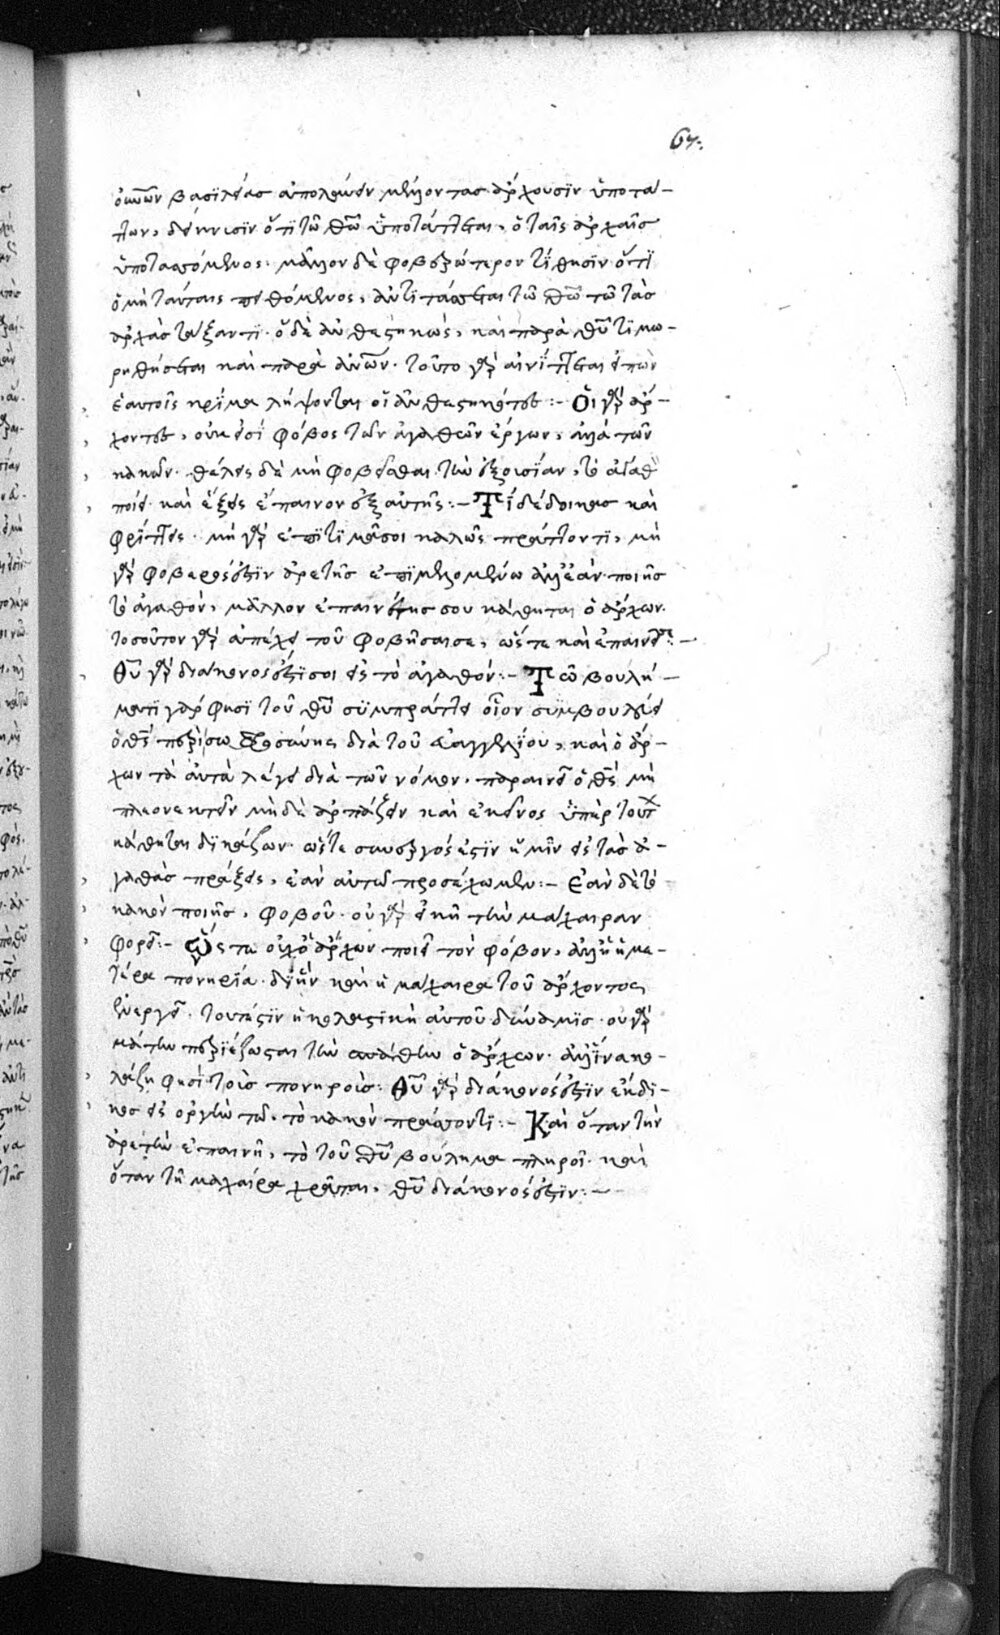 67.
βασιλείας ἀπολαύειν μέλλοντας ἄρχουσιν ὑποτάτ-
των, δείκνυσιν ὅτι τῶ θῶ ὑποτάττεται, ὁ ταῖς ἀρχαῖς
ὑποτασσόμενος· μᾶλλον δὲ φοβερώτερον τίθησιν ὅτι
ὁ μὴ ταύταις πειθόμενος, ἀντιτάσσεται τῶ θῶ τῶ τὰς
ἀρχὰς τάξαντι· ὁ δὲ ἀνθεστηκὼς, καὶ παρὰ θῦ τιμω-
ρηθήσεται καὶ παρὰ ἀνῶν· τοῦτο γὰρ αἰνίττεται εἰπὼν
ἑαυτοῖς κρῖμα λήψονται οἱ ἀνθεστηκότες :- Οἱ γὰρ ἄρ-
χοντες, οὐκ εἰσὶ φόβος τῶν ἀγαθῶν ἔργων, ἀλλὰ τῶν
κακῶν· θέλεις δὲ μὴ φοβεῖσθαι τὴν ἐξουσίαν, τὸ ἀγαθὸ
ποίει· καὶ ἕξεις ἔπαινον ἐξ αὐτῆς :- Τί δέδοικας καὶ
φρίττεις· μὴ γὰρ ἐπιτιμᾶ σοι καλῶς πράττοντι, μὴ
γὰρ φοβερός ἐστιν ἀρετῆς ἐπιμελομένω ἀλλ' ἐὰν ποιῆς
τὸ ἀγαθὸν, μᾶλλον ἐπαινέτης σου κάθηται ὁ ἄρχων.
τοσοῦτον γὰρ ἀπέχει τοῦ φοβῆσαι σε, ὥστε καὶ ἐπαινεῖ :-
θῦ γὰρ διάκονος ἐστί σοι εἰς τὸ ἀγαθόν :- Τῶ βουλή-
ματι γάρ φησι τοῦ θῦ συμπράττει οἷον συμβουλεύει
ὁ θς περὶ σωφροσύνης διὰ τοῦ εὐαγγελίου, καὶ ὁ ἄρ-
χων τὰ αὐτὰ λέγει διὰ τῶν νόμων. παραινεῖ ὁ θς μὴ
πλεονεκτεῖν μὴ δὲ ἁρπάζειν καὶ ἐκεῖνος ὑπὲρ τούτ
κάθηται δικάζων· ὥστε συνεργός ἐστιν ἡμῖν εἰς τὰς ἀ-
γαθὰς πράξεις, ἐὰν αὐτῶ προσέχωμεν :- Ἐὰν δὲ τὸ
κακὸν ποιῆς, φοβοῦ· οὐ γὰρ εἰκῆ τὴν μάχαιραν
φορεῖ :- Ὥστε οὐχ ὁ ἄρχων ποιεῖ τὸν φόβον, ἀλλ' ἡ ἡμε-
τέρα πονηρία· δι' ἣν καὶ ἡ μάχαιρα τοῦ ἄρχοντος
ἐνεργεῖ· τουτέστιν ἡ κολαστικὴ αὐτοῦ δύναμις· οὐ γὰρ
μάτην περιέζωσται τὴν σπάθην ὁ ἄρχων· ἀλλ' ἵνα κο-
λάζη φησὶ τοὺς πονηρούς· Θῦ γὰρ διάκονός ἐστιν ἔκδι-
κος εἰς ὀργὴν τῶ, τὸ κακὸν πράσσοντι :- Καὶ ὅταν τὴν
ἀρετὴν ἐπαινῆ, τὸ τοῦ θῦ βούλημα πληροῖ· καὶ
ὅταν τῆ μαχαίρα χρᾶται, θῦ διάκονός ἐστιν :-